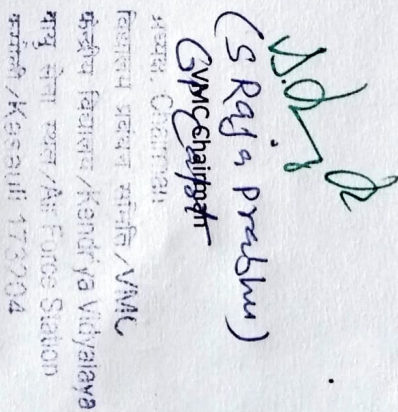 (S Raja Prabhu)
VMC Chairman
अध्यक्ष, Chairman
विद्यालय प्रबंधन समिति / VMC
केन्द्रीय विद्यालय / Kendriya Vidyalaya
वायु सेना स्थल / Air Force Station
कसौली / Kasauli 173204